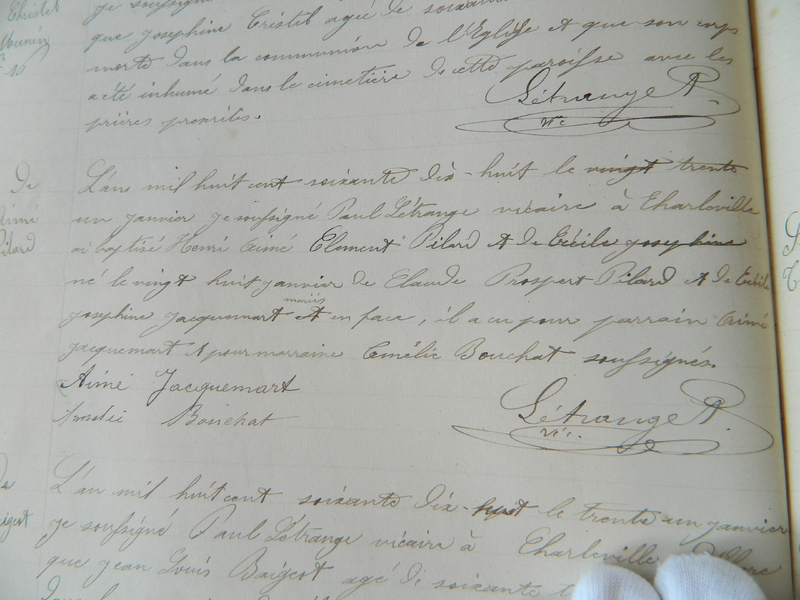 je soussigné
que Josephine Cristel agée de soixante
morte dans la communion de l'Eglise et que son corps
a été inhumé dans le cimetière de cette paroisse avec les
prières prescrites.
Létrange P.
vic
L'an mil huit cent soixante dix-huit le vingt trente
un janvier je soussigné Paul Létrange vicaire à Charleville
ai baptisé Henri Aimé Clement Pilard et de Cécile Josephine
né le vingt huit janvier de Claude Prospert Pilard et de Cécile
Josephine Jacquemart mariés et en face, il a eu pour parrain Aimé
Jacquemart et pour marraine Amélie Bouchat soussignés.
Aimé Jacquemart
Amelie Bouchat
Létrange P.
vic.
de
Aimé
Pilard
L'an mil huit cent soixante dix-huit le trente un janvier
je soussigné Paul Létrange vicaire à Charleville
que Jean Louis Baigest agé de soixante